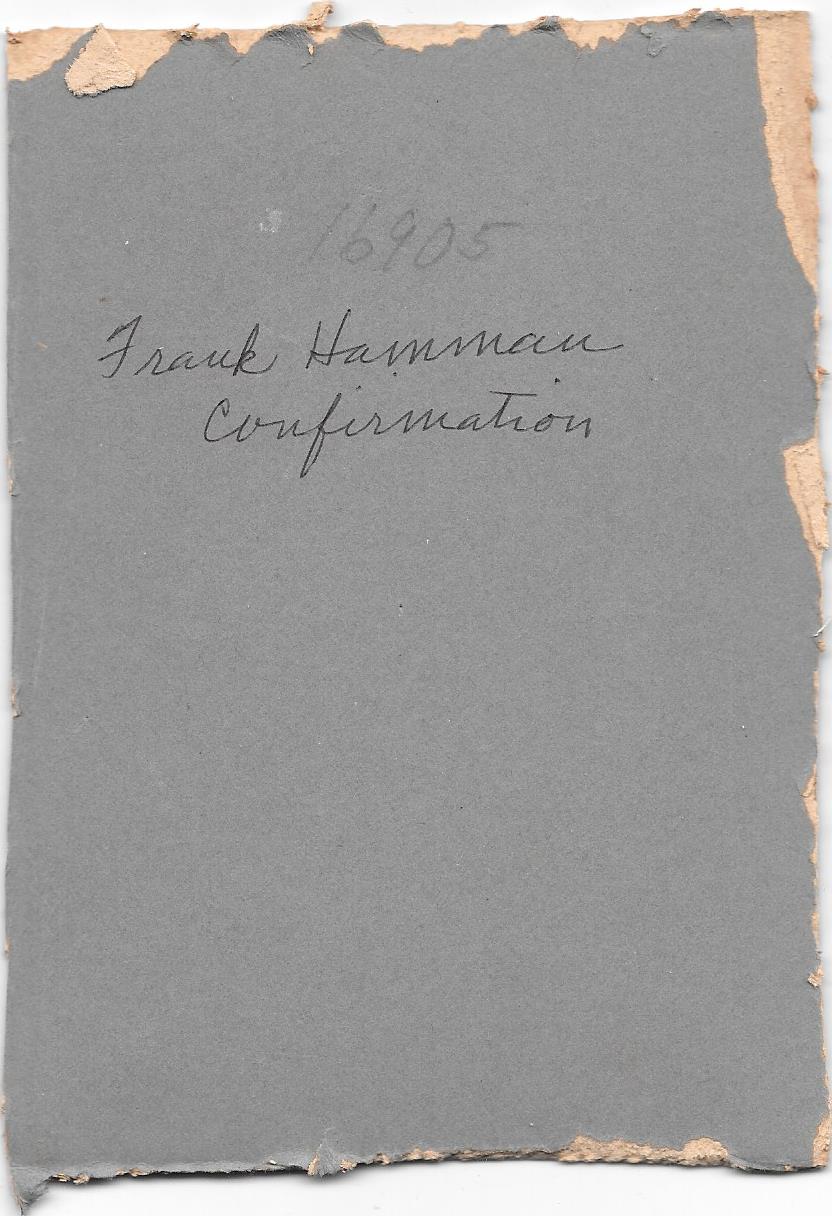 16905
Frank Hamman
Confirmation